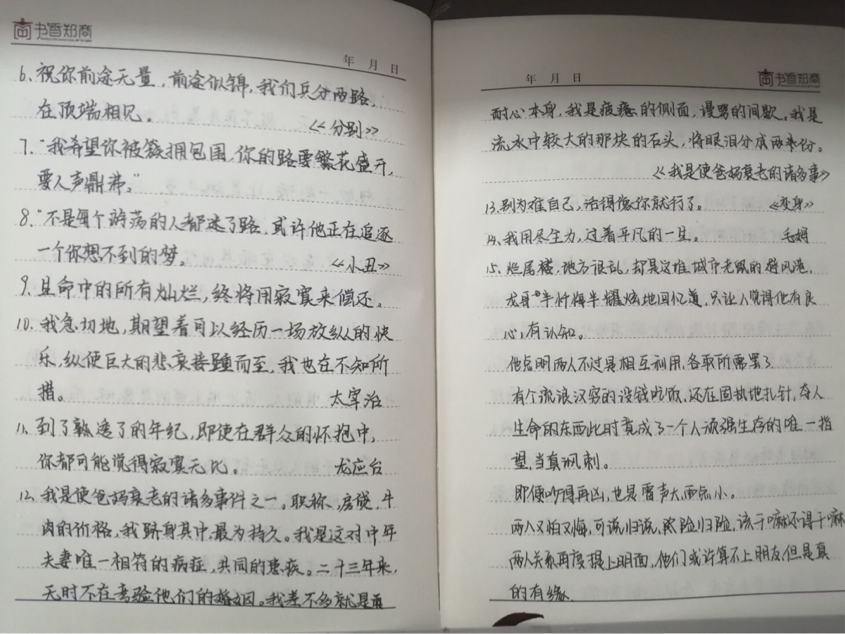 书香郑商
年 月 日
6、祝你前途无量，前途似锦，我们兵分两路，
在顶端相见。 《分别》
7、"我希望你被簇拥包围，你的路要繁花盛开，
要人声鼎沸。"
8、"不是每个游荡的人都迷了路，或许他正在追逐
一个你想不到的梦。 《小丑》
9、生命中的所有灿烂，终将用寂寞来偿还。
10、我急切地，期望着可以经历一场放纵的快
乐，纵使巨大的悲哀接踵而至，我也在不知所
措。 太宰治
11、到了熟透了的年纪，即使在群众的怀抱中，
你都可能觉得寂寞无比。 龙应台
12、我是使爸妈衰老的诸多事件之一。职称，房贷，牛
肉的价格，我跻身其中，最为持久。我是这对中年
夫妻唯一相符的病症，共同的患疾。二十三年来，
无时不在考验他们的婚姻。我差不多就是
年 月 日
书香郑商
耐心本身，我是疲惫的侧面，谩骂的间歇。我是
流水中较大的那块的石头，将眼泪分成两条份。
《我是使爸妈衰老的诸多事》
13、别为难自己，活得像你就行了。 《变身》
14、我用尽生力，过着平凡的一生。 毛姆
15、烂尾楼，地方很乱，却是这难城市无赖的避风港。
龙哥半忏悔半耀炫地回忆道，只让人觉得他有良
心，有认知。
他点明两人不过是相互利用，各取所需罢了
有个流浪汉穷的没钱吃饭，还在固执地扎针，夺人
生命的东西此时竟成了一个人顽强生存的唯一指
望，当真讽刺。
即便吵得再凶，也是雷声大而点小。
两人又怕又悔，可说归说，险归险，该干嘛还得干嘛
两人关系再度摆上明面，他们或许算不上朋友但是真
的有缘